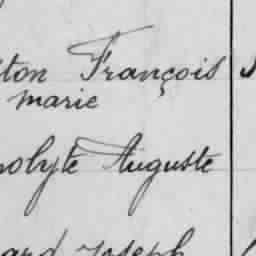 ton François
marie
olyte Auguste
ard Joseph